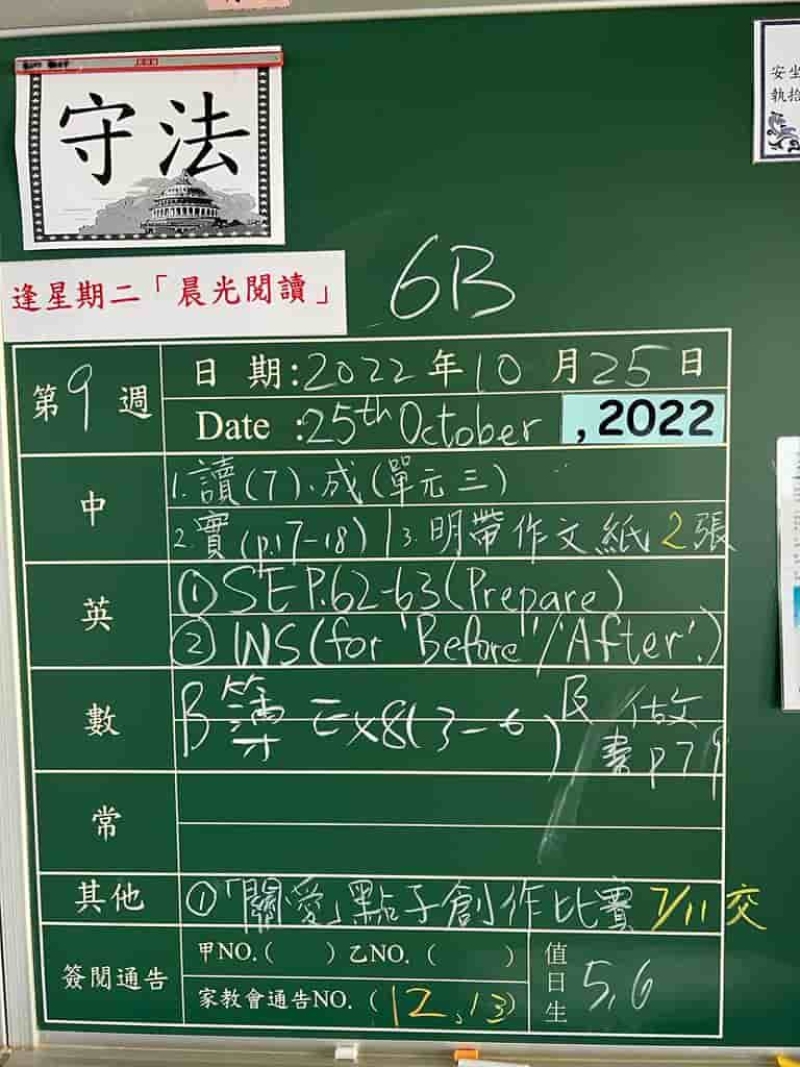 守法
安坐
執拾
逢星期二「晨光閱讀」
6B
第9週
日 期:2022年10月25日
Date :25th October ,2022
中
1.讀(7)、成(單元三)
2.實(p.17-18) / 3.明帶作文紙2張
英
①SE P.62-63(Prepare)
②WS(for 'Before'/'After'.)
數
B簿 Ex8(3-6) 及 做
書p79
常
其他
①「關愛」點子創作比賽 7/11交
簽閱通告
甲NO.( )乙NO.( )
家教會通告NO.(12,13)
值日生
5,6